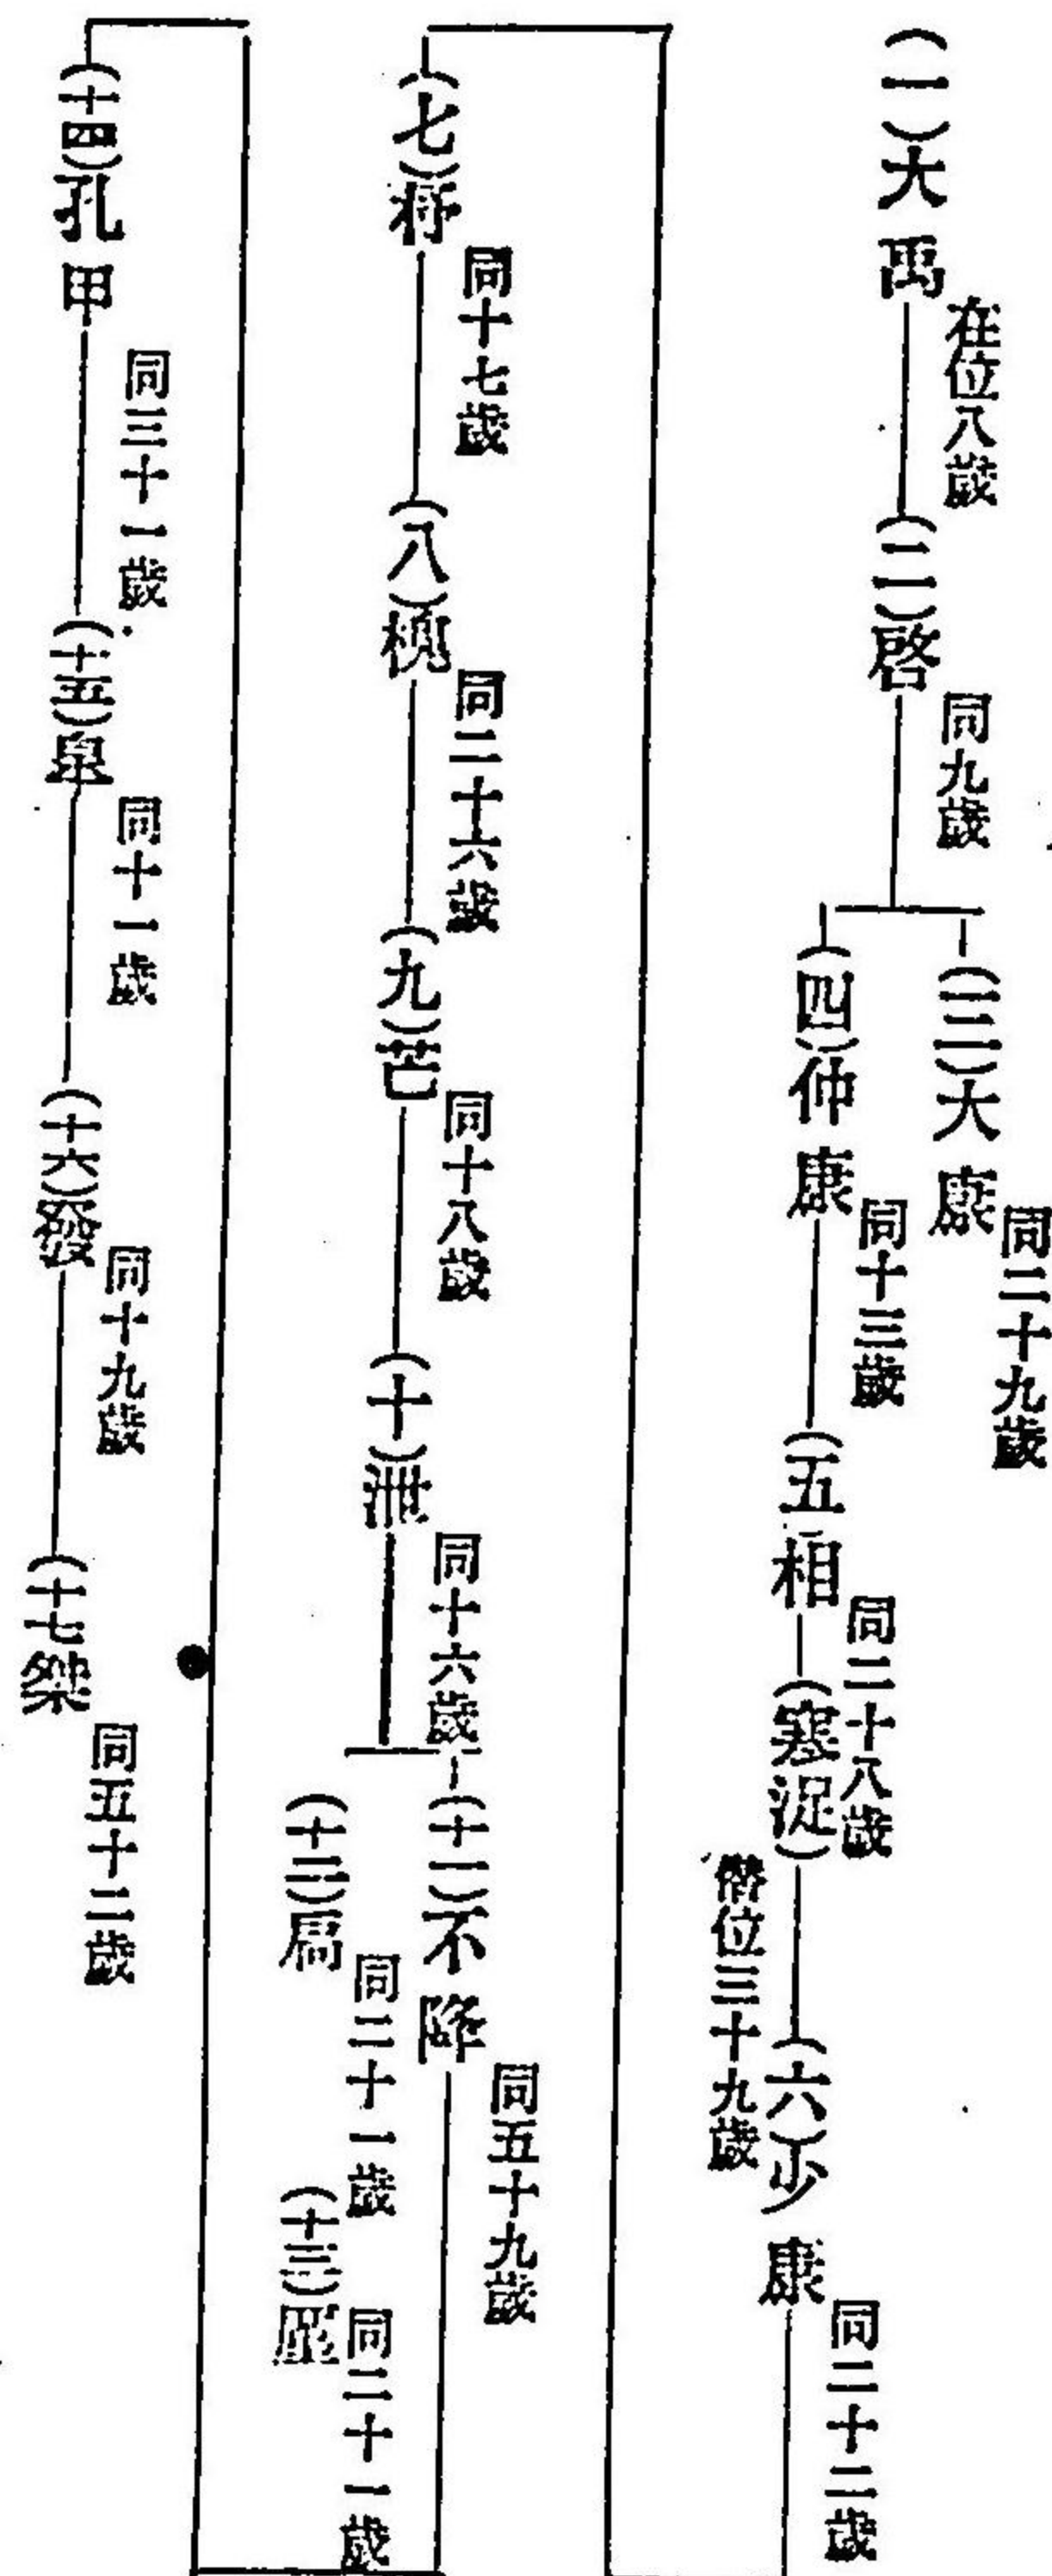 (一)大禹
在位八歲
(二)啓
同九歲
(三)大康
同二十九歲
(四)仲康
同十三歲
(五相
同二十八歲
(寒浞)
僭位三十九歲
(六)少康
同二十二歲
(七)杼
同十七歲
(八)槐
同二十六歲
(九)芒
同十八歲
(十)泄
同十六歲
(十一)不降
同五十九歲
(十二)扃
同二十一歲
(十三)
同二十一歲
(十四)孔甲
同三十一歲
(十五)皐
同十一歲
(十六)發
同十九歲
(十七桀
同五十二歲